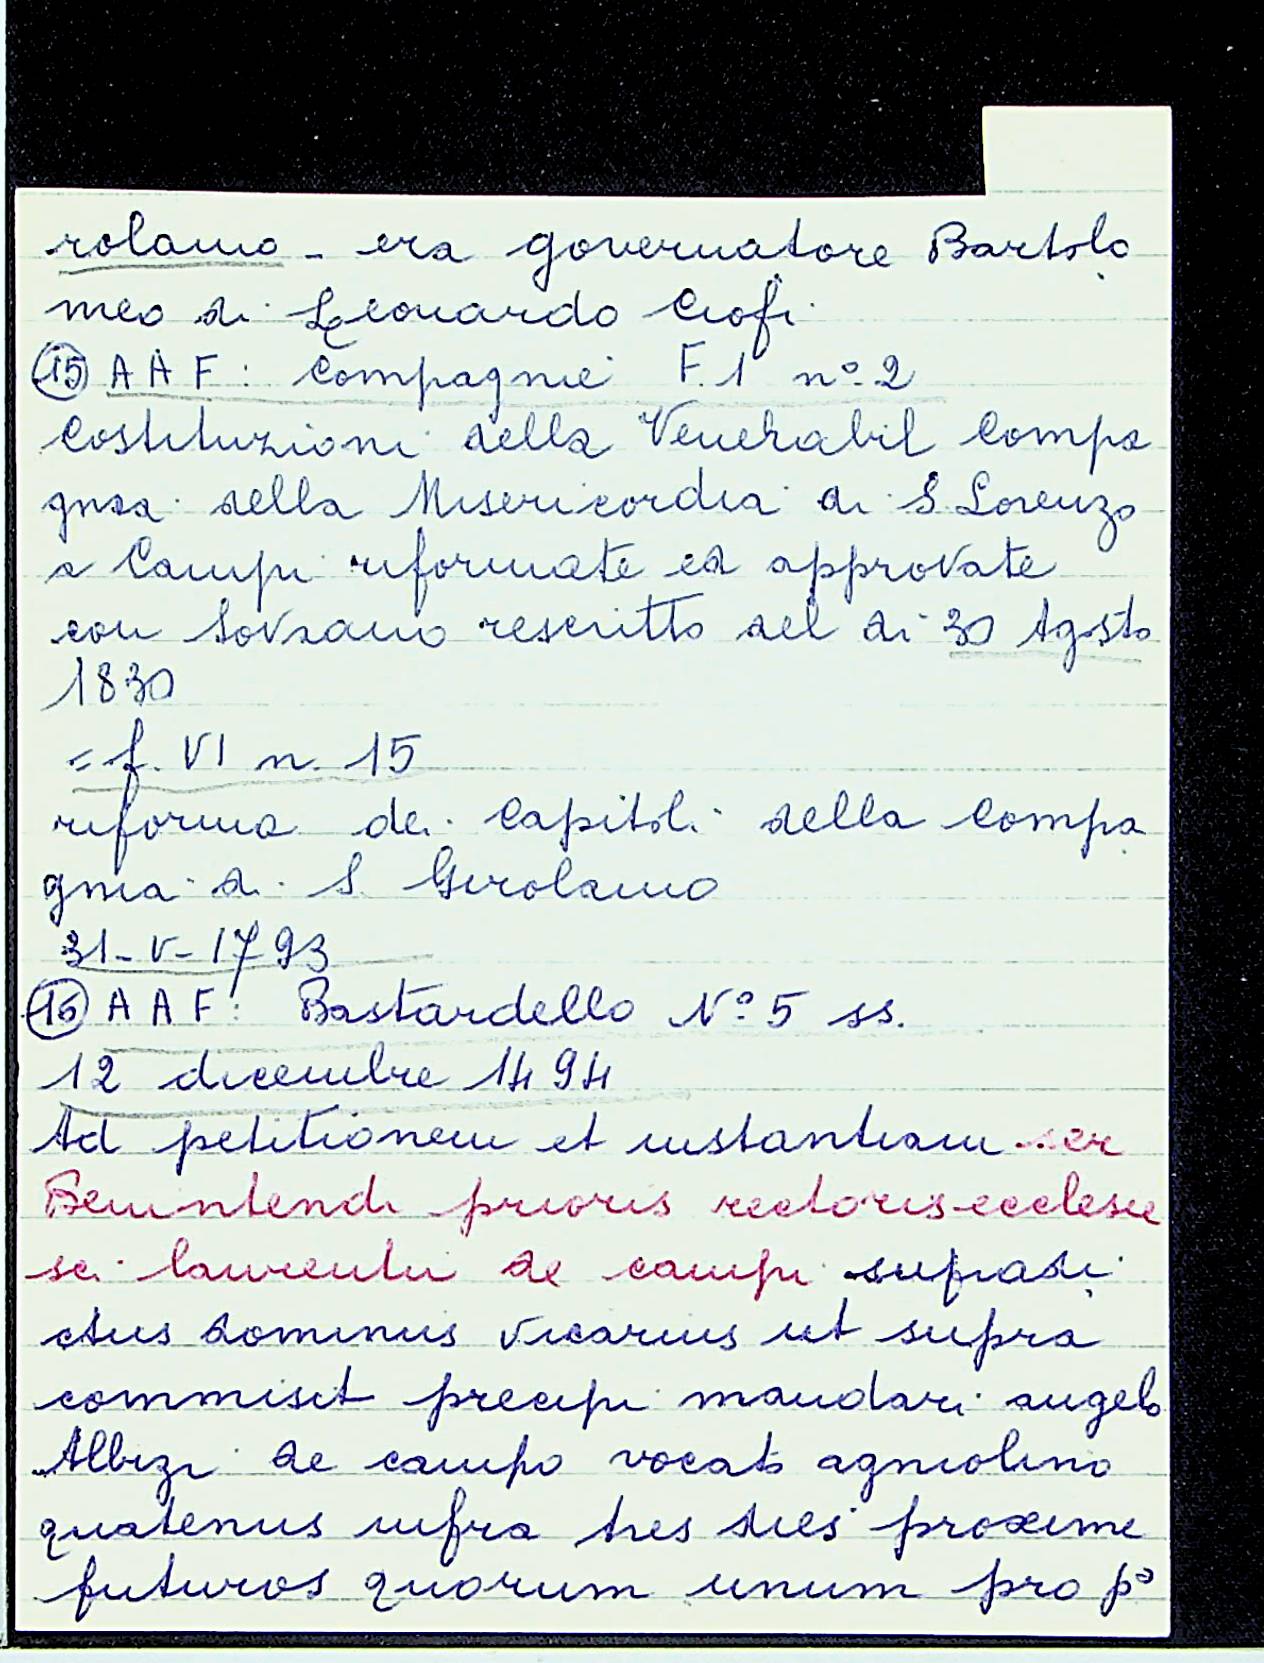 rolamo - era governatore Bartolo
meo di Leonardo Ciofi
15 A A F : Compagnie F. 1 n° 2
Costituzioni della Venerabil Compa
gnia della Misericordia di S. Lorenzo
a Campi riformate ed approvate
con Sovrano rescritto del di 30 Agosto
1830
= f. VI n. 15
riforma dei Capitoli della Compa
gnia di S. Girolamo
31-V-1793
16 A A F : Bastardello N° 5 ss.
12 dicembre 1494
Ad petitionem et instantiam ser
Benintendi prioris rectoris ecclesie
sci laurentii de campi supradi
ctus dominus vicarius ut supra
commisit precipi mandari angelo
Albizi de campo vocato agniolino
quatenus infra tres dies proxime
futuros quorum unum pro p°